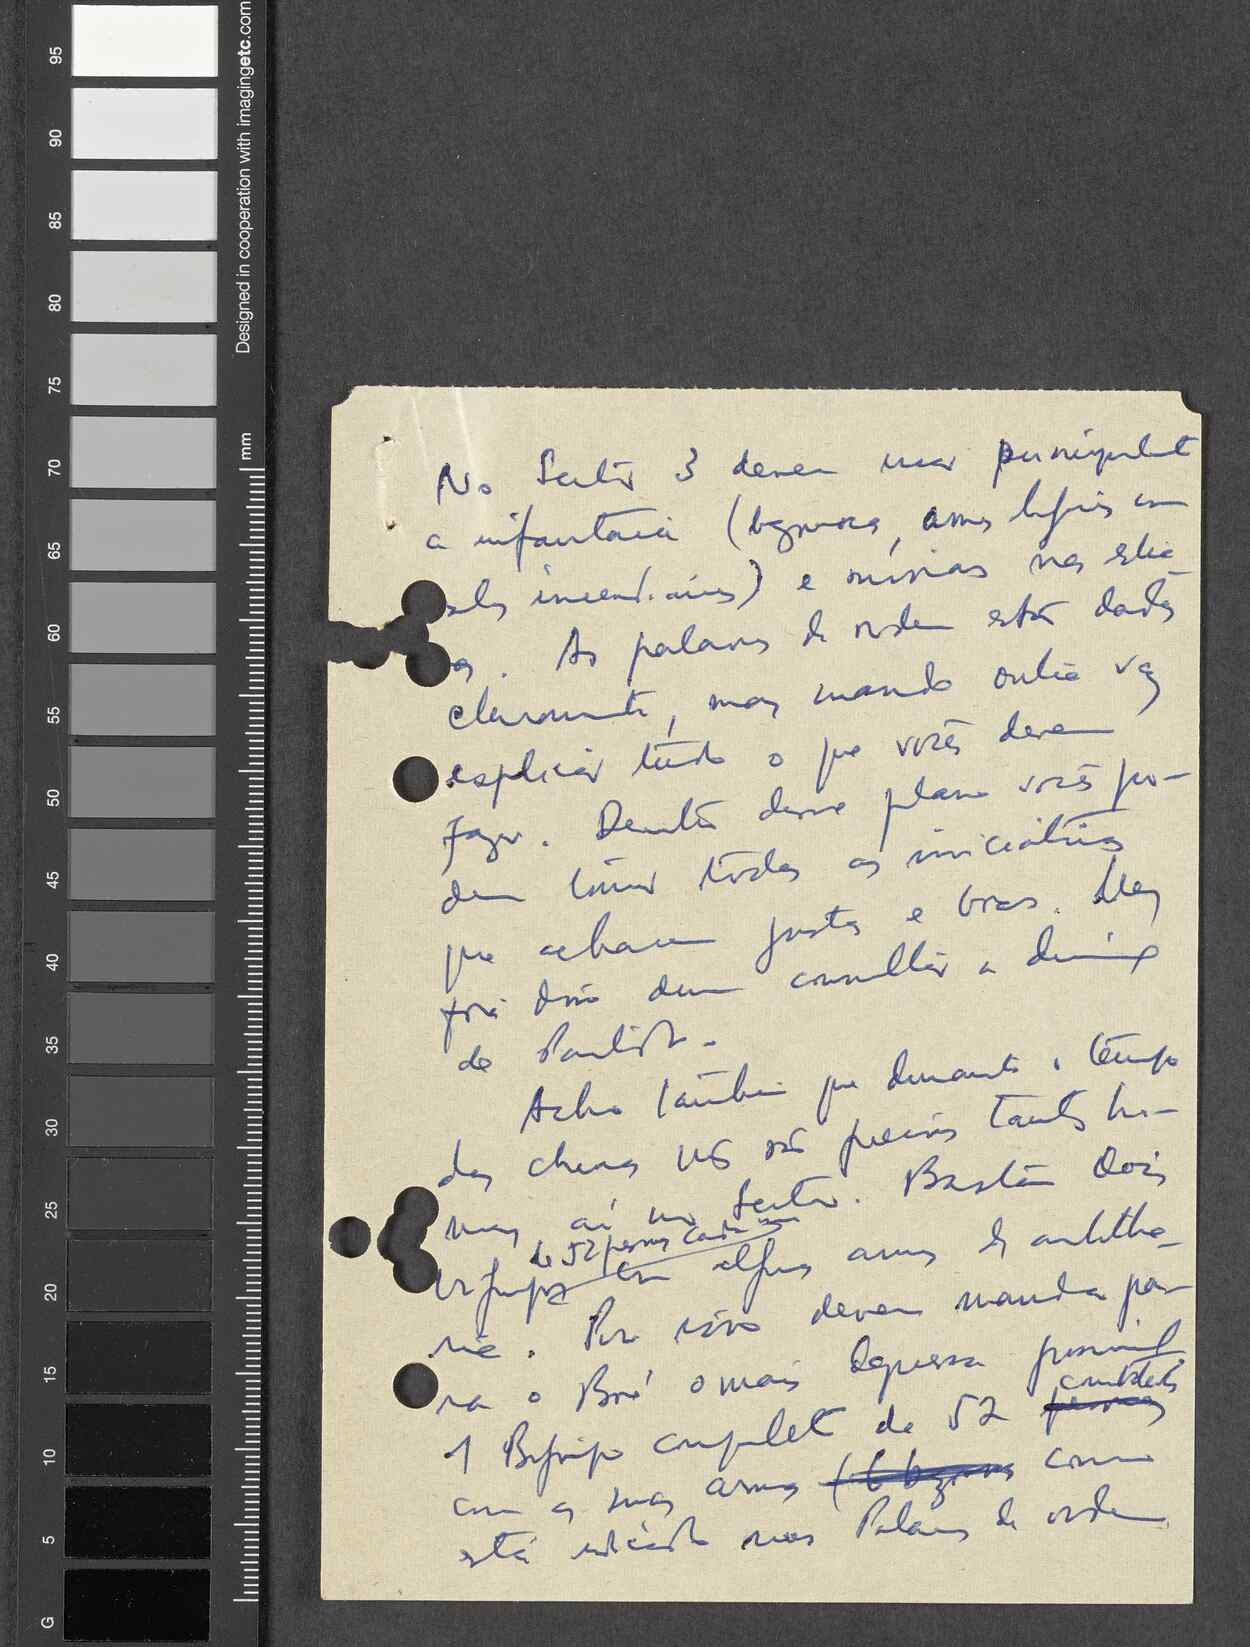 95
90
85
80
75
70
65
60
55
50
45
40
35
30
25
20
15
10
5
G
Designed in cooperation with imagingetc.com
mm
No Sector 3 devem usar
a infantaria (bazucas, armas ligeiras com
incendiárias) e minas nas estra-
das. As palavras de ordem estão dadas
claramente, mas mando outra vez
explicar tudo o que vocês devem
fazer. Dentro desse plano vocês po-
dem tomar todas as iniciativas
que acharem justas e boas. Mas
fora disso devem consultar a
do
Acho também que durante o tempo
das chuvas não são precisos tantos ho-
mens aí no Sector. Bastam dois
bigrupos em algumas armas de artilha-
de 52 pessoas cada um
ria. Por isso devem mandar pa-
ra o Boé o mais depressa possível
1 Bigrupo completo de 52 pessoas
combatentes
com as suas armas (6 bazucas como
está indicado nas Palavras de ordem